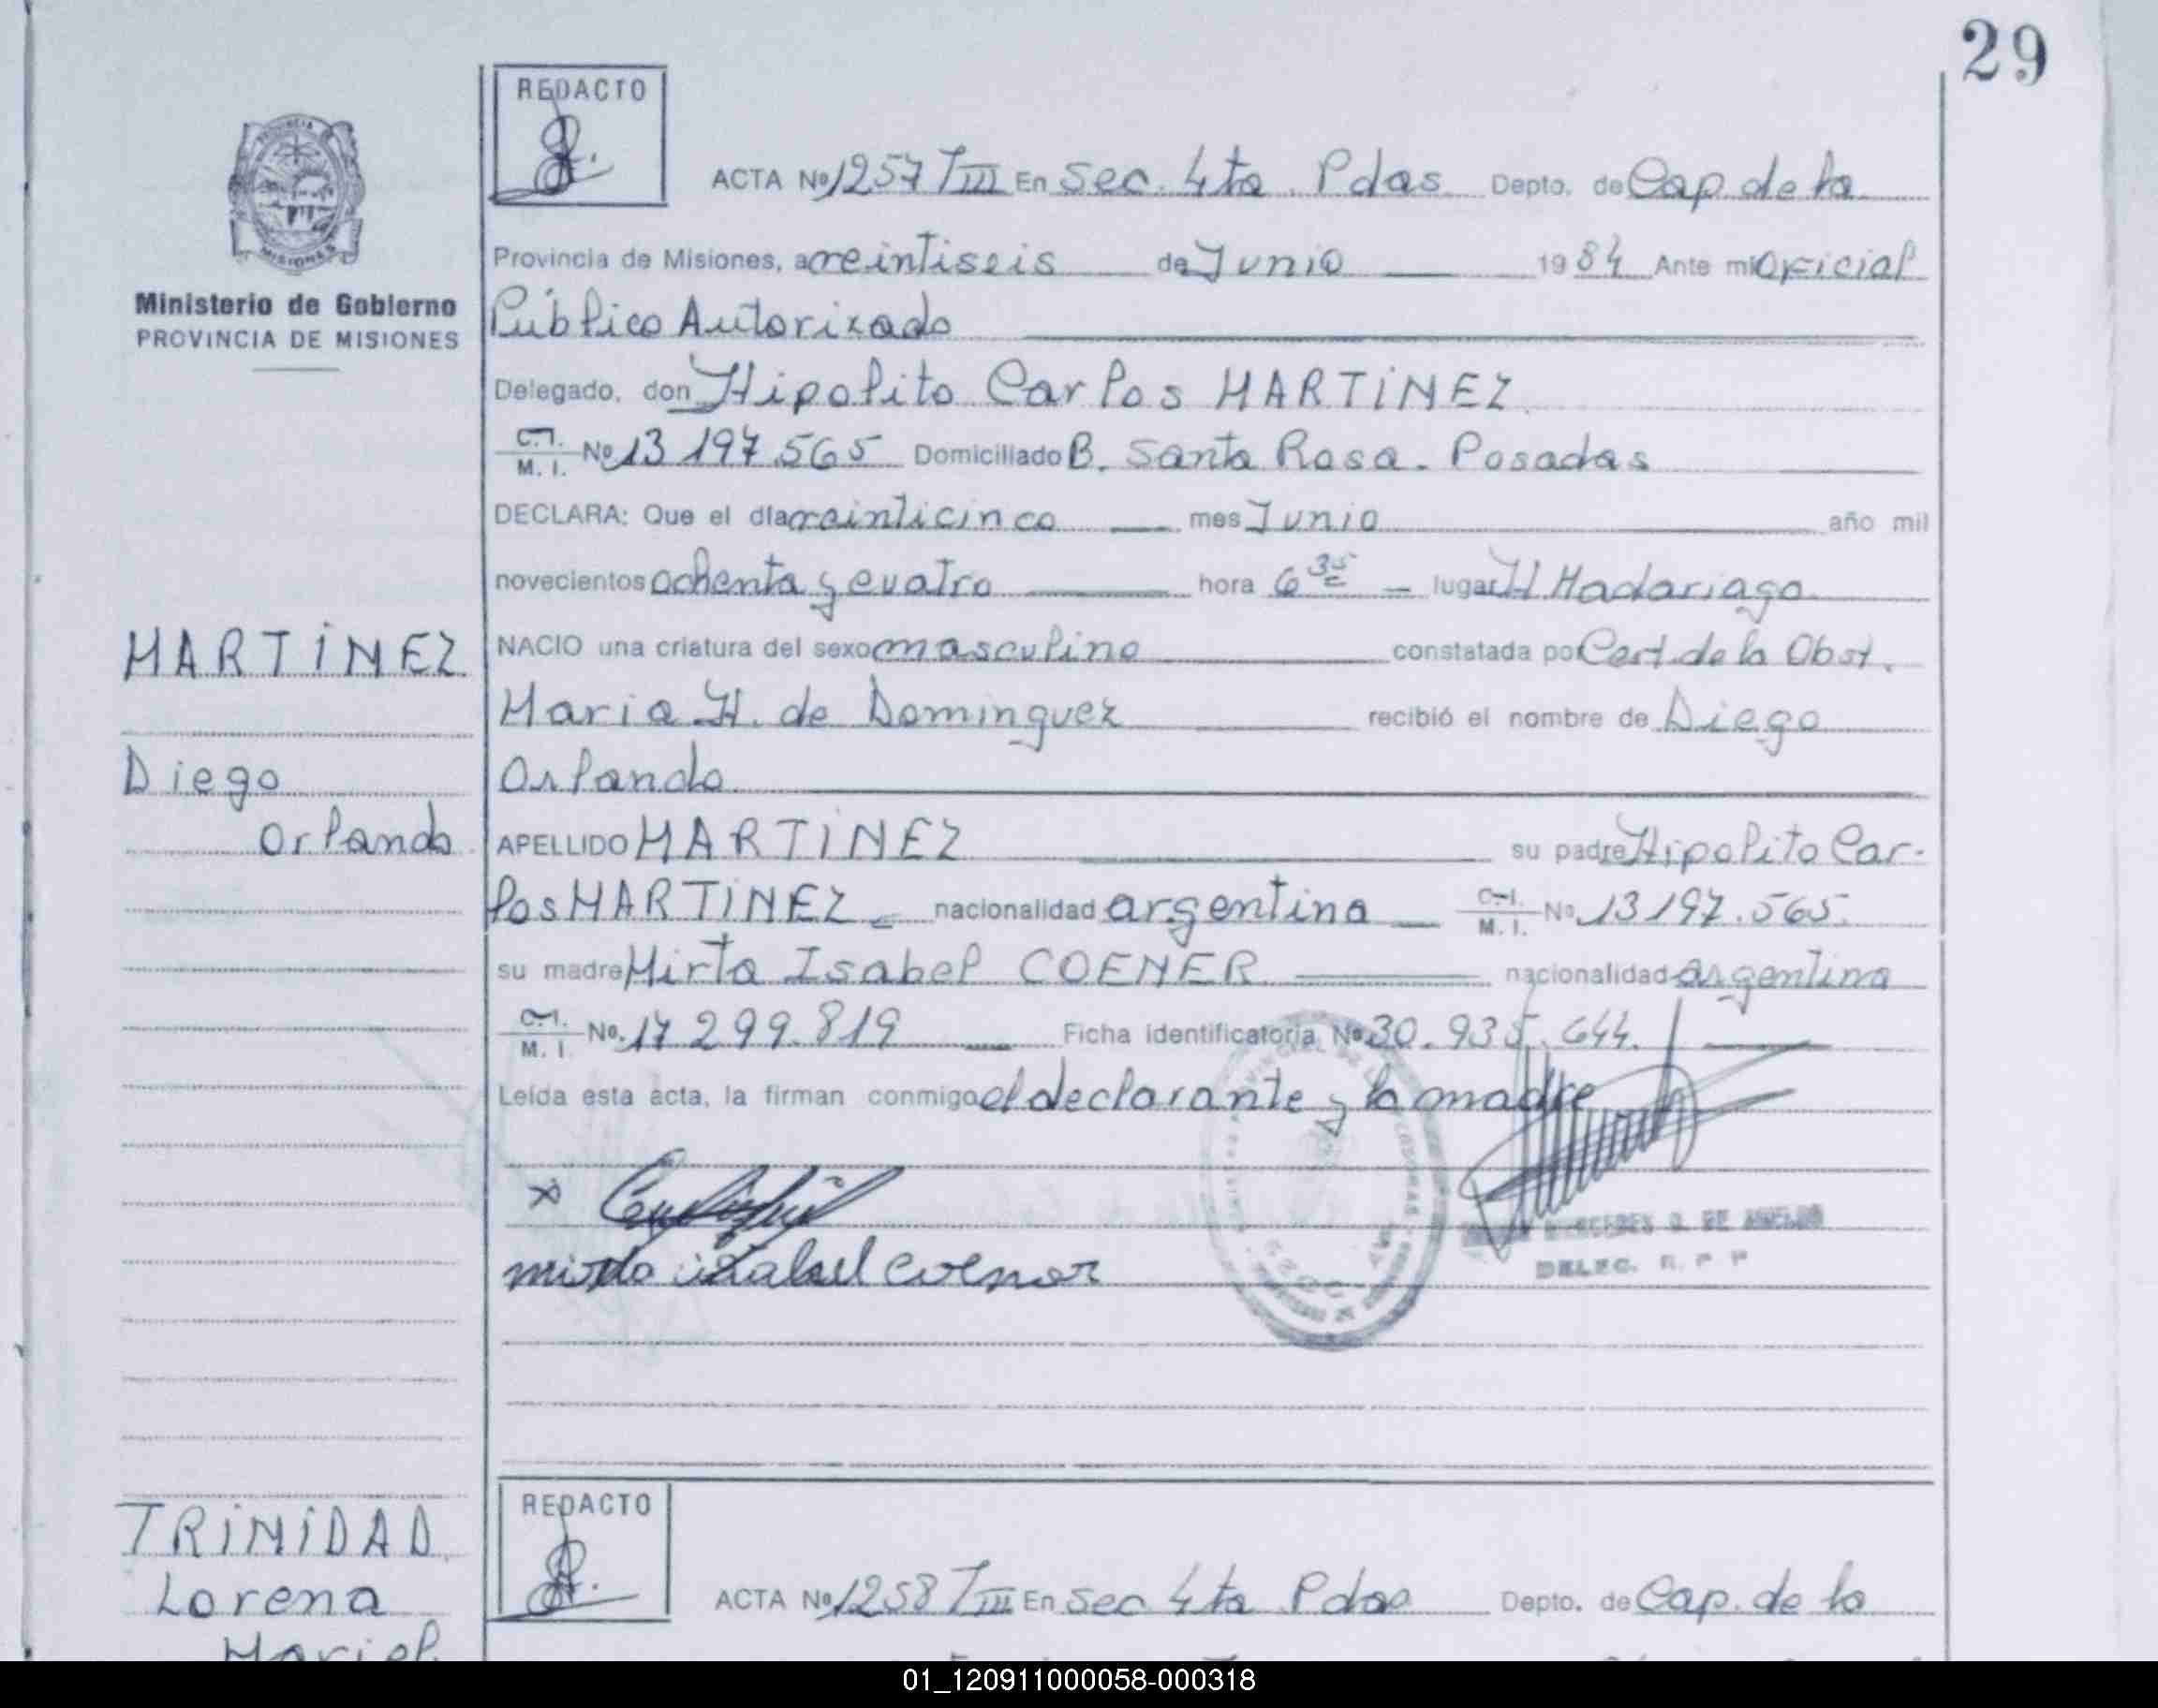 29
REDACTO
ACTA Nº 1257 T III En Sec. 4ta Pdas. Depto. de Cap. de la
Provincia de Misiones, a veintiseis de Junio 1984 Ante mi Oficial
Público Autorizado
Ministerio de Gobierno
PROVINCIA DE MISIONES
Delegado, don Hipolito Carlos MARTINEZ
C.I. M.I. Nº 13 197.565 Domiciliado B. Santa Rosa. Posadas
DECLARA: Que el día veinticinco mes Junio año mil
novecientos ochenta y cuatro hora 6 35 lugar H Madariaga
MARTINEZ
NACIO una criatura del sexo masculino constatada por Cert. de la Obst.
Maria H. de Dominguez recibió el nombre de Diego
Diego
Orlando
Orlando
APELLIDO MARTINEZ su padre Hipolito Car-
los MARTINEZ nacionalidad argentina C.I. M.I. Nº 13197.565.
su madre Mirta Isabel COENER nacionalidad argentina
C.I. M.I. No. 17 299.819 Ficha identificatoria Nº 30.935.644.
Leída esta acta, la firman conmigo el declarante y la madre
mirta isabel coener
DELEG. R. P P
TRINIDAD
Lorena
Mariel
REDACTO
ACTA Nº 1258 T III En Sec 4ta Pdas Depto. de Cap. de la
01_120911000058-000318